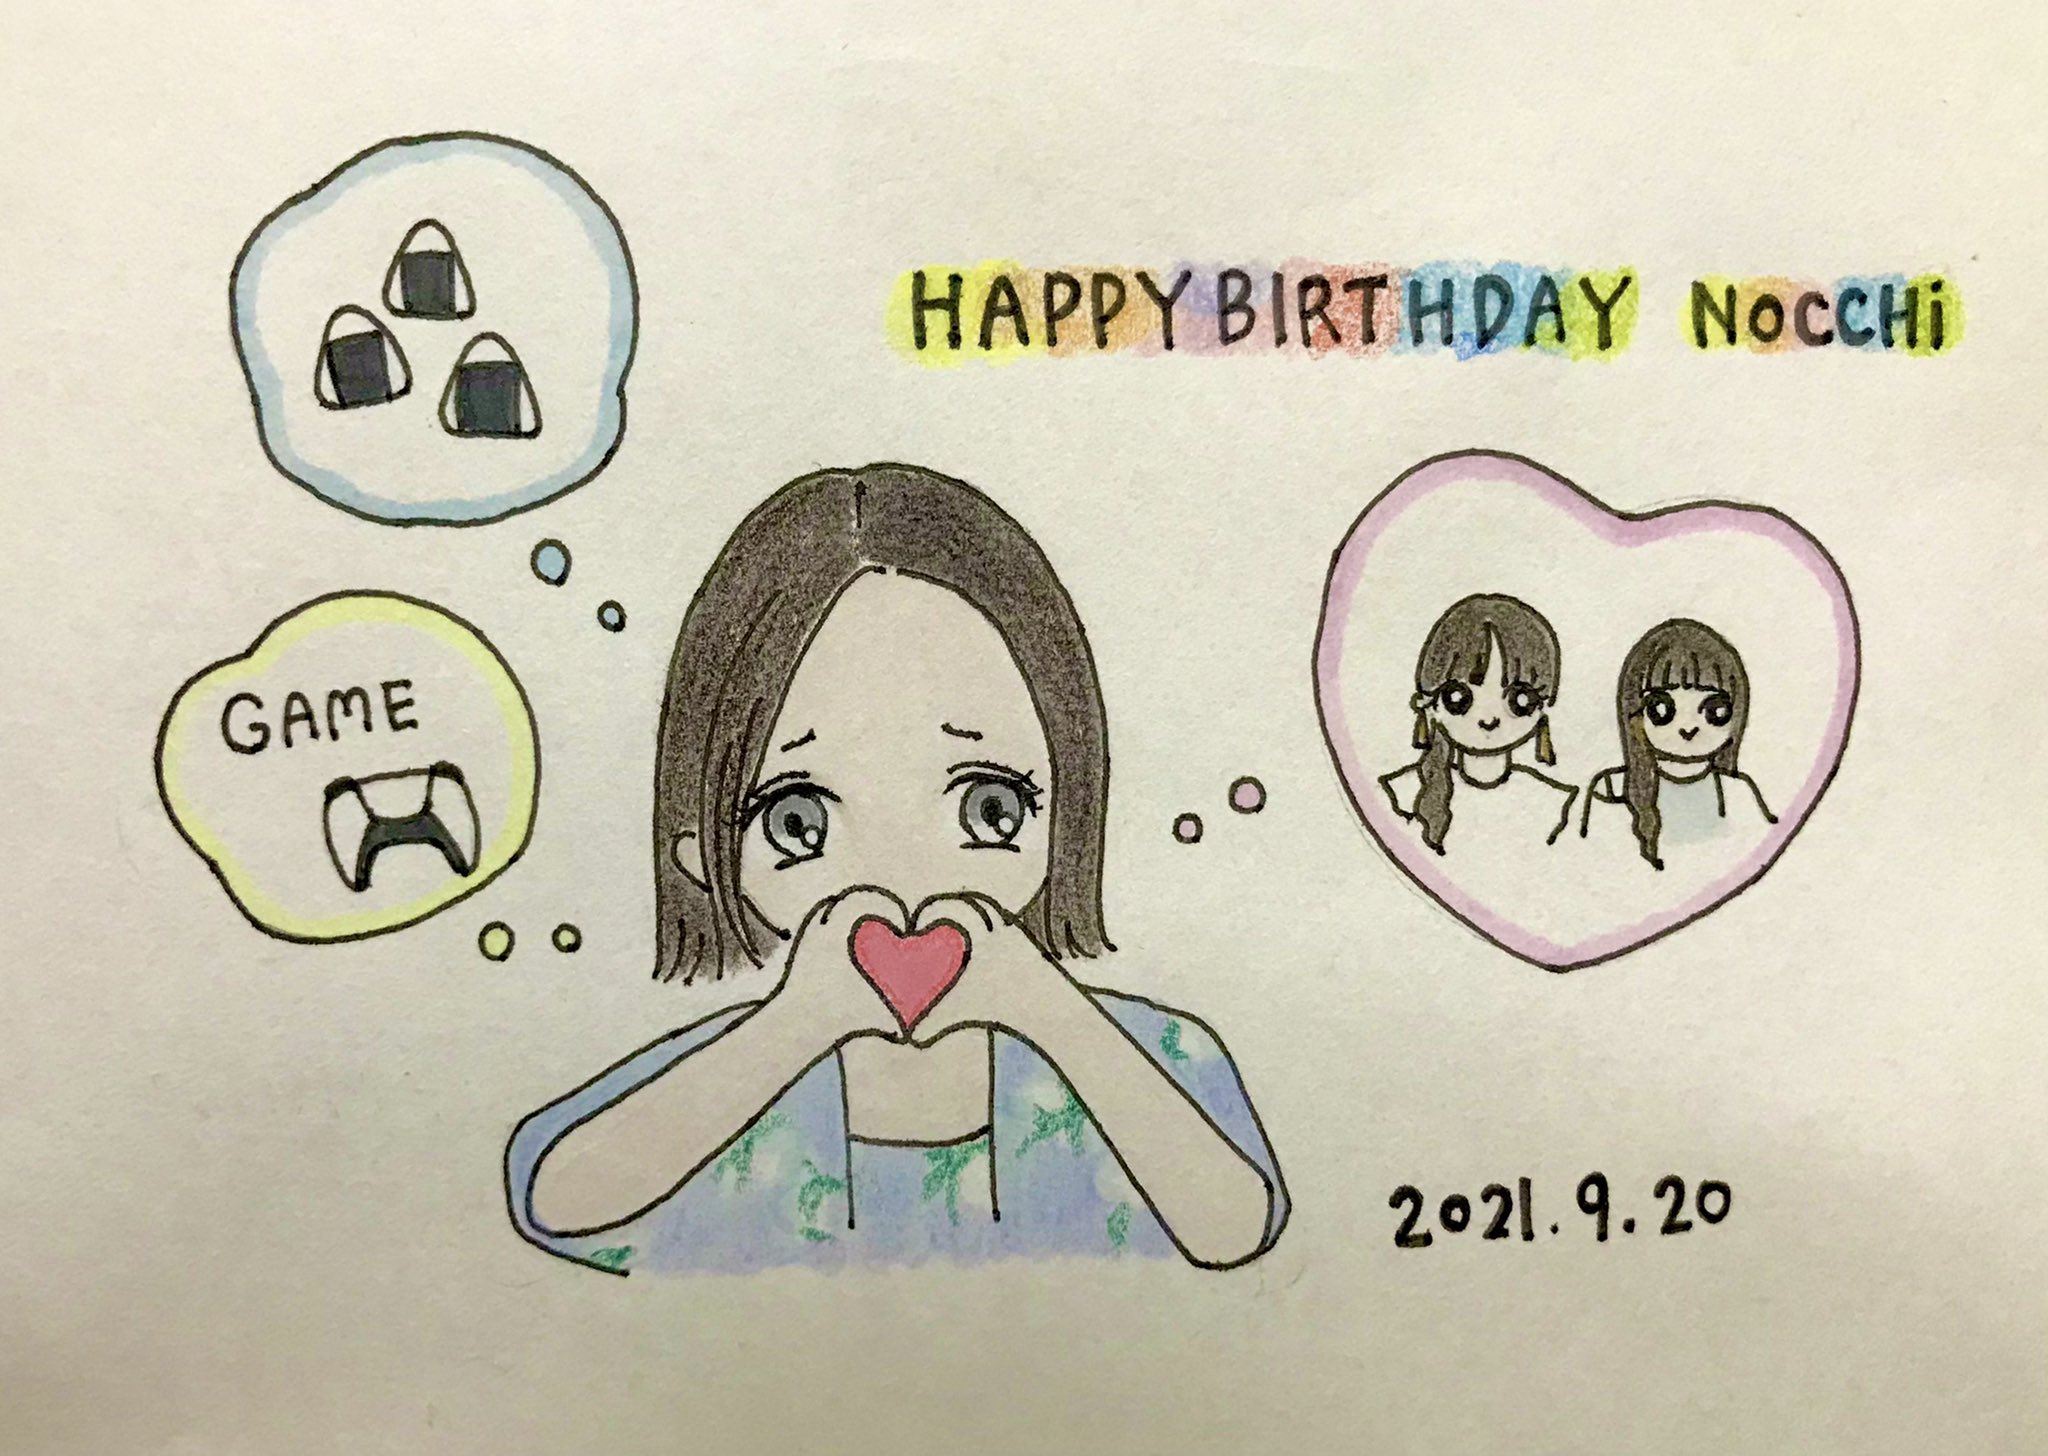 HAPPY BIRTHDAY NOCCHi
GAME
2021.9.20